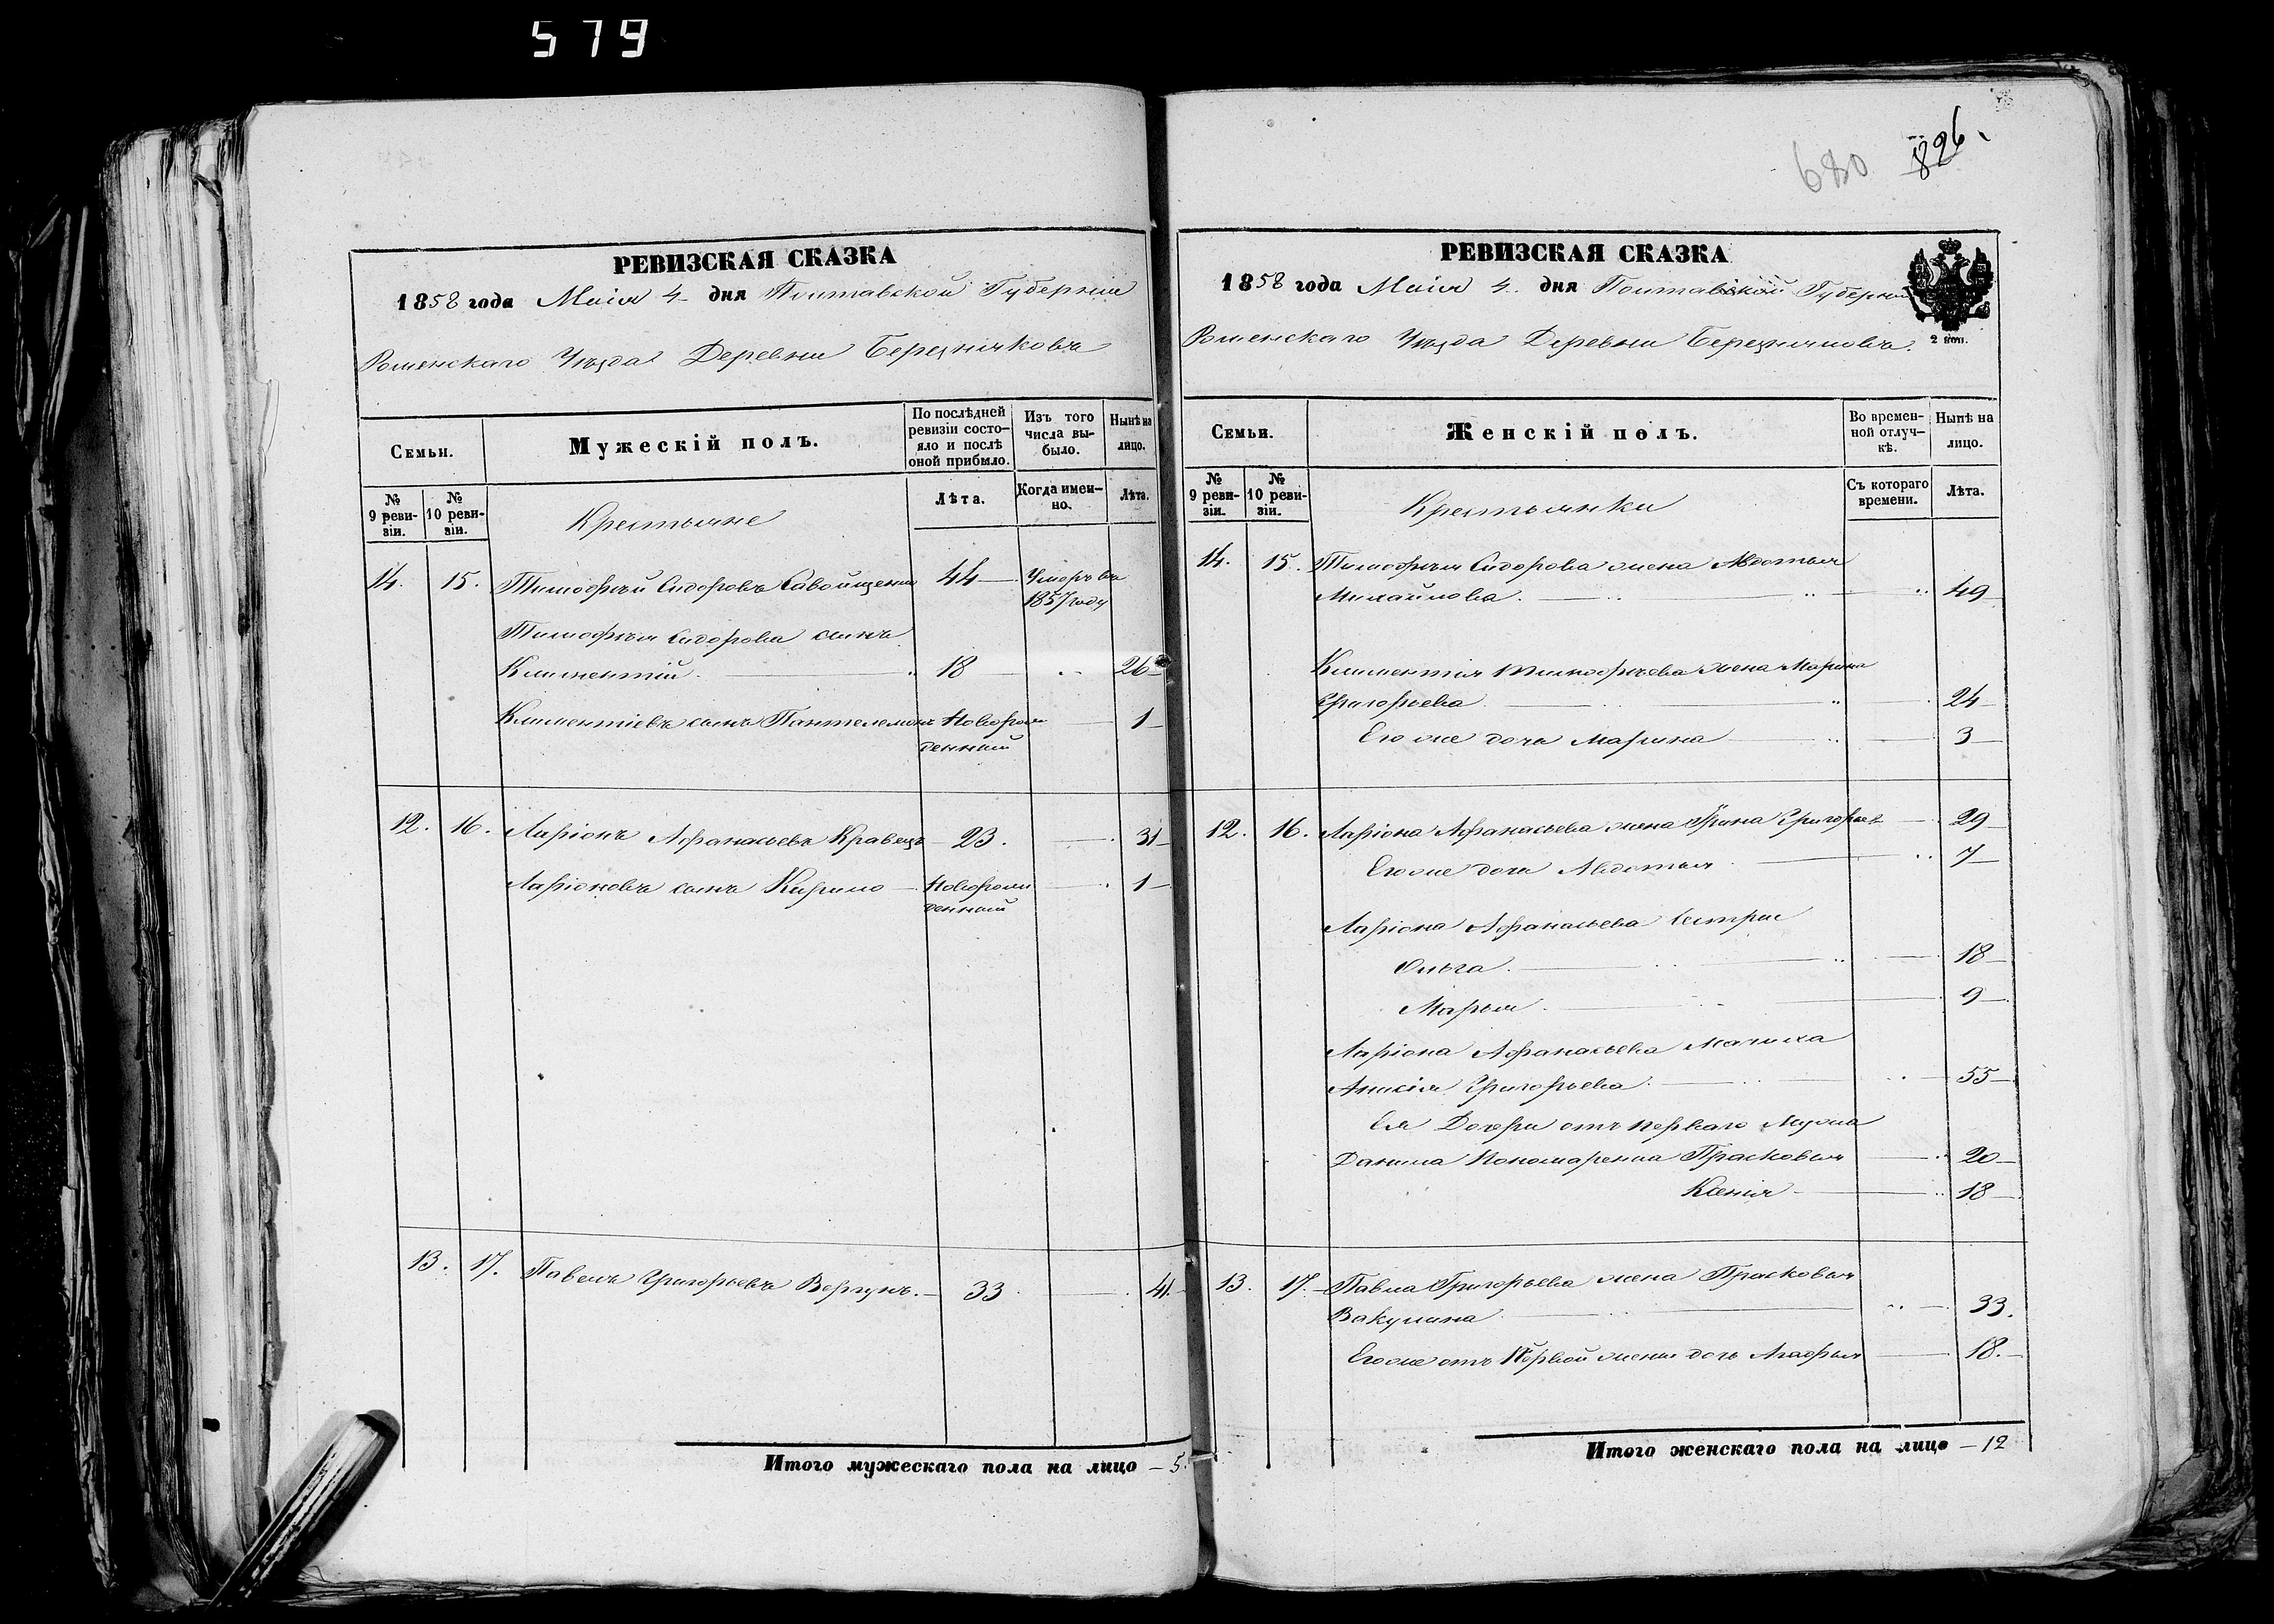 579
РЕВИЗСКАЯ СКАЗКА
1858 года Маія 4 дня Полтавской Губерніи
Роменскаго Уѣзда Деревни Березняковъ
Семьи.
Мужескій полъ.
По послѣдней ревизіи состо-яло и послѣ оной прибыло.
Изъ того числа вы-было.
Нынѣ на лицо.
№ 9 реви-зіи.
№ 10 реви-зіи.
Крестьяне
Лѣта.
Когда имен-но.
Лѣта.
14. 15. Тимофѣй Сидоровъ Савойщенко 44 Умеръ въ
1857 году
Тимофѣя Сидорова сынъ
Климентій 18 26
Климентіевъ сынъ Пантелемонъ Новорож 1
денный
12. 16. Ларіонъ Афанасьевъ Кравецъ 23. 31
Ларіоновъ сынъ Кирило Новорож 1
денный
13. 17. Павелъ Григорьевъ Вергунъ. 33 41.
Итого мужескаго пола на лицо 5.
680 826.
РЕВИЗСКАЯ СКАЗКА
1858 года Маія 4 дня Полтавской Губерніи
2 коп.
Роменскаго Уѣзда Деревни Березняковъ.
Семьи.
Женскій полъ.
Во времен-ной отлуч-кѣ.
Нынѣ на лицо.
№ 9 реви-зіи.
№ 10 реви-зіи.
Крестьянки
Съ котораго времени.
Лѣта.
14. 15. Тимофѣя Сидорова жена Авдотья
Михайлова. 49
Климентія Тимофѣева жена Марина
Григорьева 24
Его же дочь Марина 3
12. 16. Ларіона Афанасьева жена Ирина Григорьева 29
Его же дочь Авдотья 7
Ларіона Афанасьева Сестры
Ольга. 18
Марья. 9
Ларіона Афанасьева Мачиха
Анисія Григорьева. 55
Ея Дочери отъ перваго Мужа
Данила Пономаренка Прасковья 20
Ксенія 18
13. 17. Павла Григорьева жена Прасковья
Вакулина 33.
Его же отъ Первой жены дочь Агафья 18.
Итого женскаго пола на лицо 12